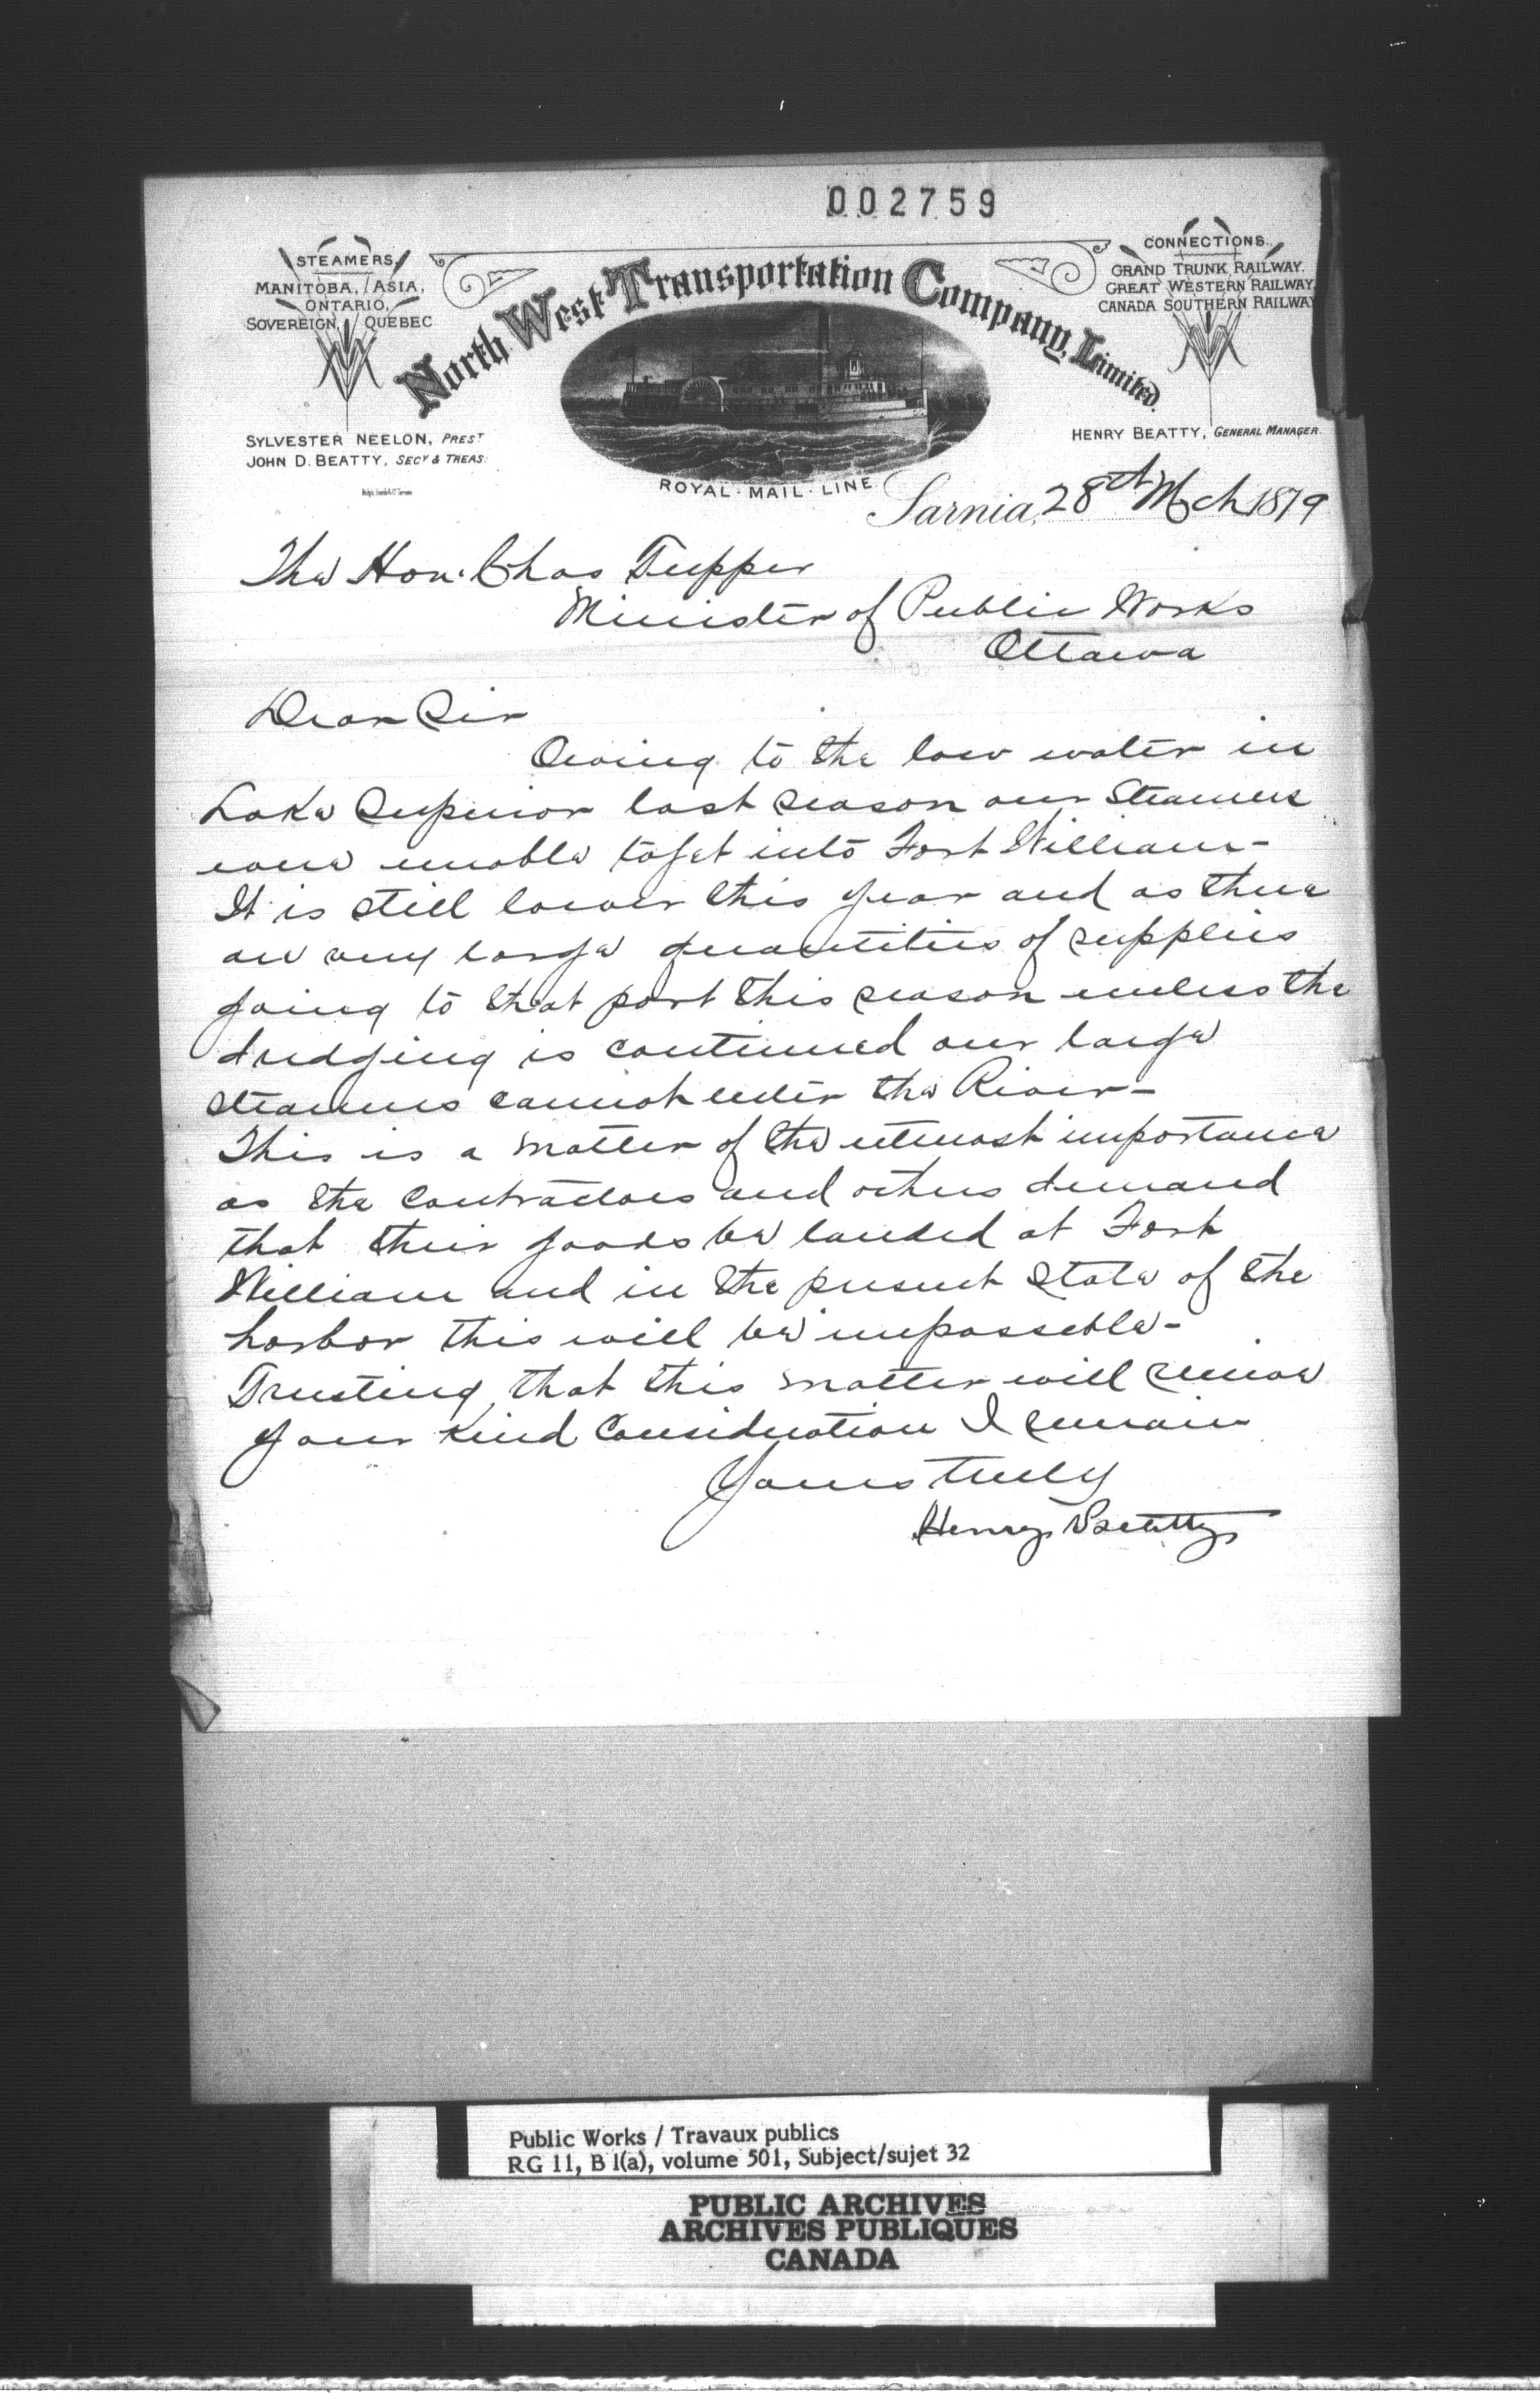 002759
STEAMERS,
MANITOBA, ASIA,
ONTARIO,
SOVEREIGN, QUEBEC
North West Transportation Company, Limited.
CONNECTIONS.
GRAND TRUNK RAILWAY.
GREAT WESTERN RAILWAY,
CANADA SOUTHERN RAILWAY
SYLVESTER NEELON, PREST
JOHN D. BEATTY, SECY & TREAS.
HENRY BEATTY, GENERAL MANAGER.
ROYAL · MAIL · LINE.
Sarnia, 28th Mch 1879
The Hon. Chas Tupper
Minister of Public Works
Ottawa
Dear Sir
Owing to the low water in
Lake Superior last season our Steamers
were unable to get into Fort William -
It is still lower this year and as there
are very large quantities of supplies
going to that port this season unless the
dredging is continued our large
steamers cannot enter the River -
This is a matter of the utmost importance
as the Contractors and others demand
that their goods be landed at Fort
William and in the present state of the
harbor this will be impossible -
Trusting that this matter will receive
your kind Consideration I remain
Yours truly
Henry Beatty
Public Works / Travaux publics
RG 11, B 1(a), volume 501, Subject/sujet 32
PUBLIC ARCHIVES
ARCHIVES PUBLIQUES
CANADA